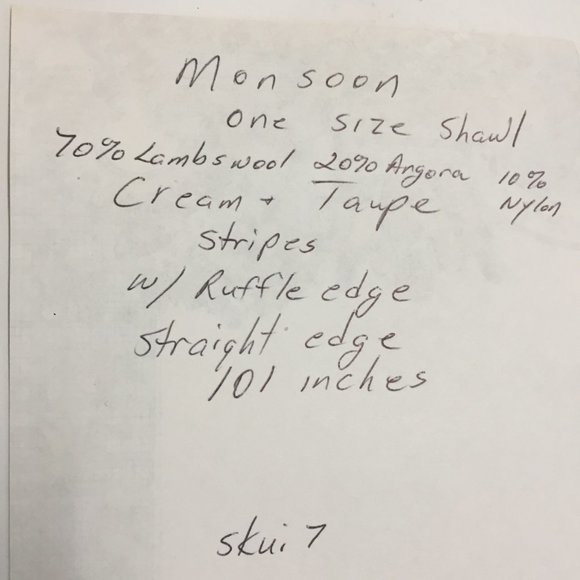 Monsoon
one size Shawl
70% Lambswool 20% Angora 10% Nylon
Cream + Taupe
stripes
w/ Ruffle edge
straight edge
101 inches
skui 7